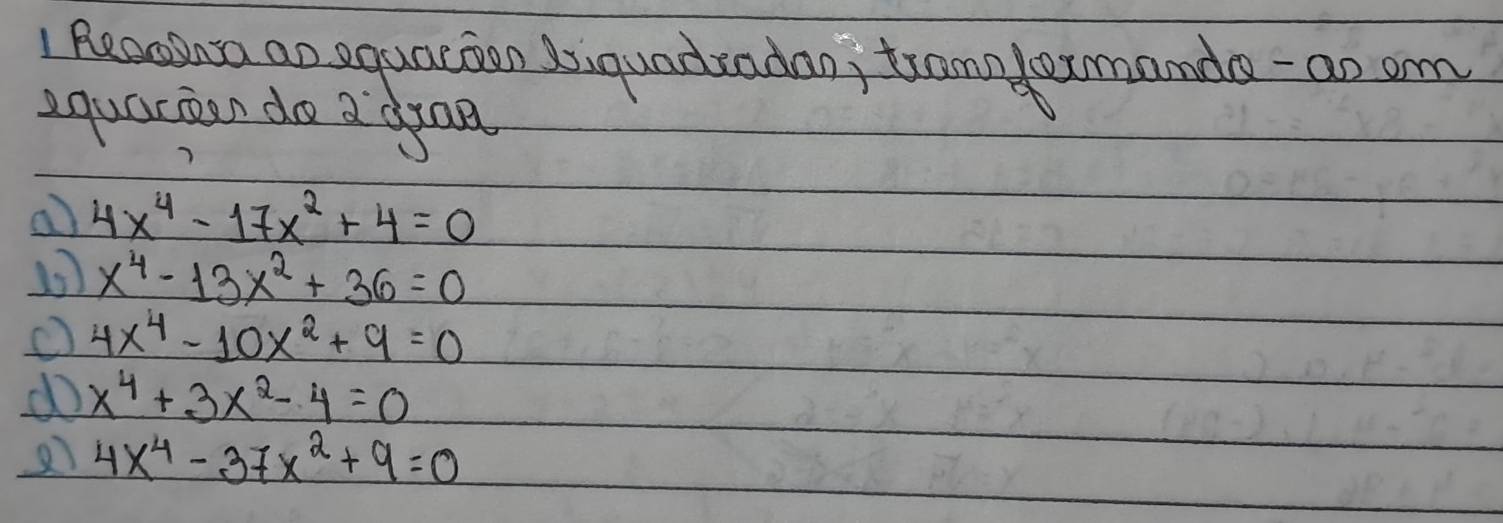 1 Resolva as equações biquadradas, transformando-as em
equações do 2º grau
a) 4x⁴ - 17x² + 4 = 0
b) x⁴ - 13x² + 36 = 0
c) 4x⁴ - 10x² + 9 = 0
d) x⁴ + 3x² - 4 = 0
e) 4x⁴ - 37x² + 9 = 0